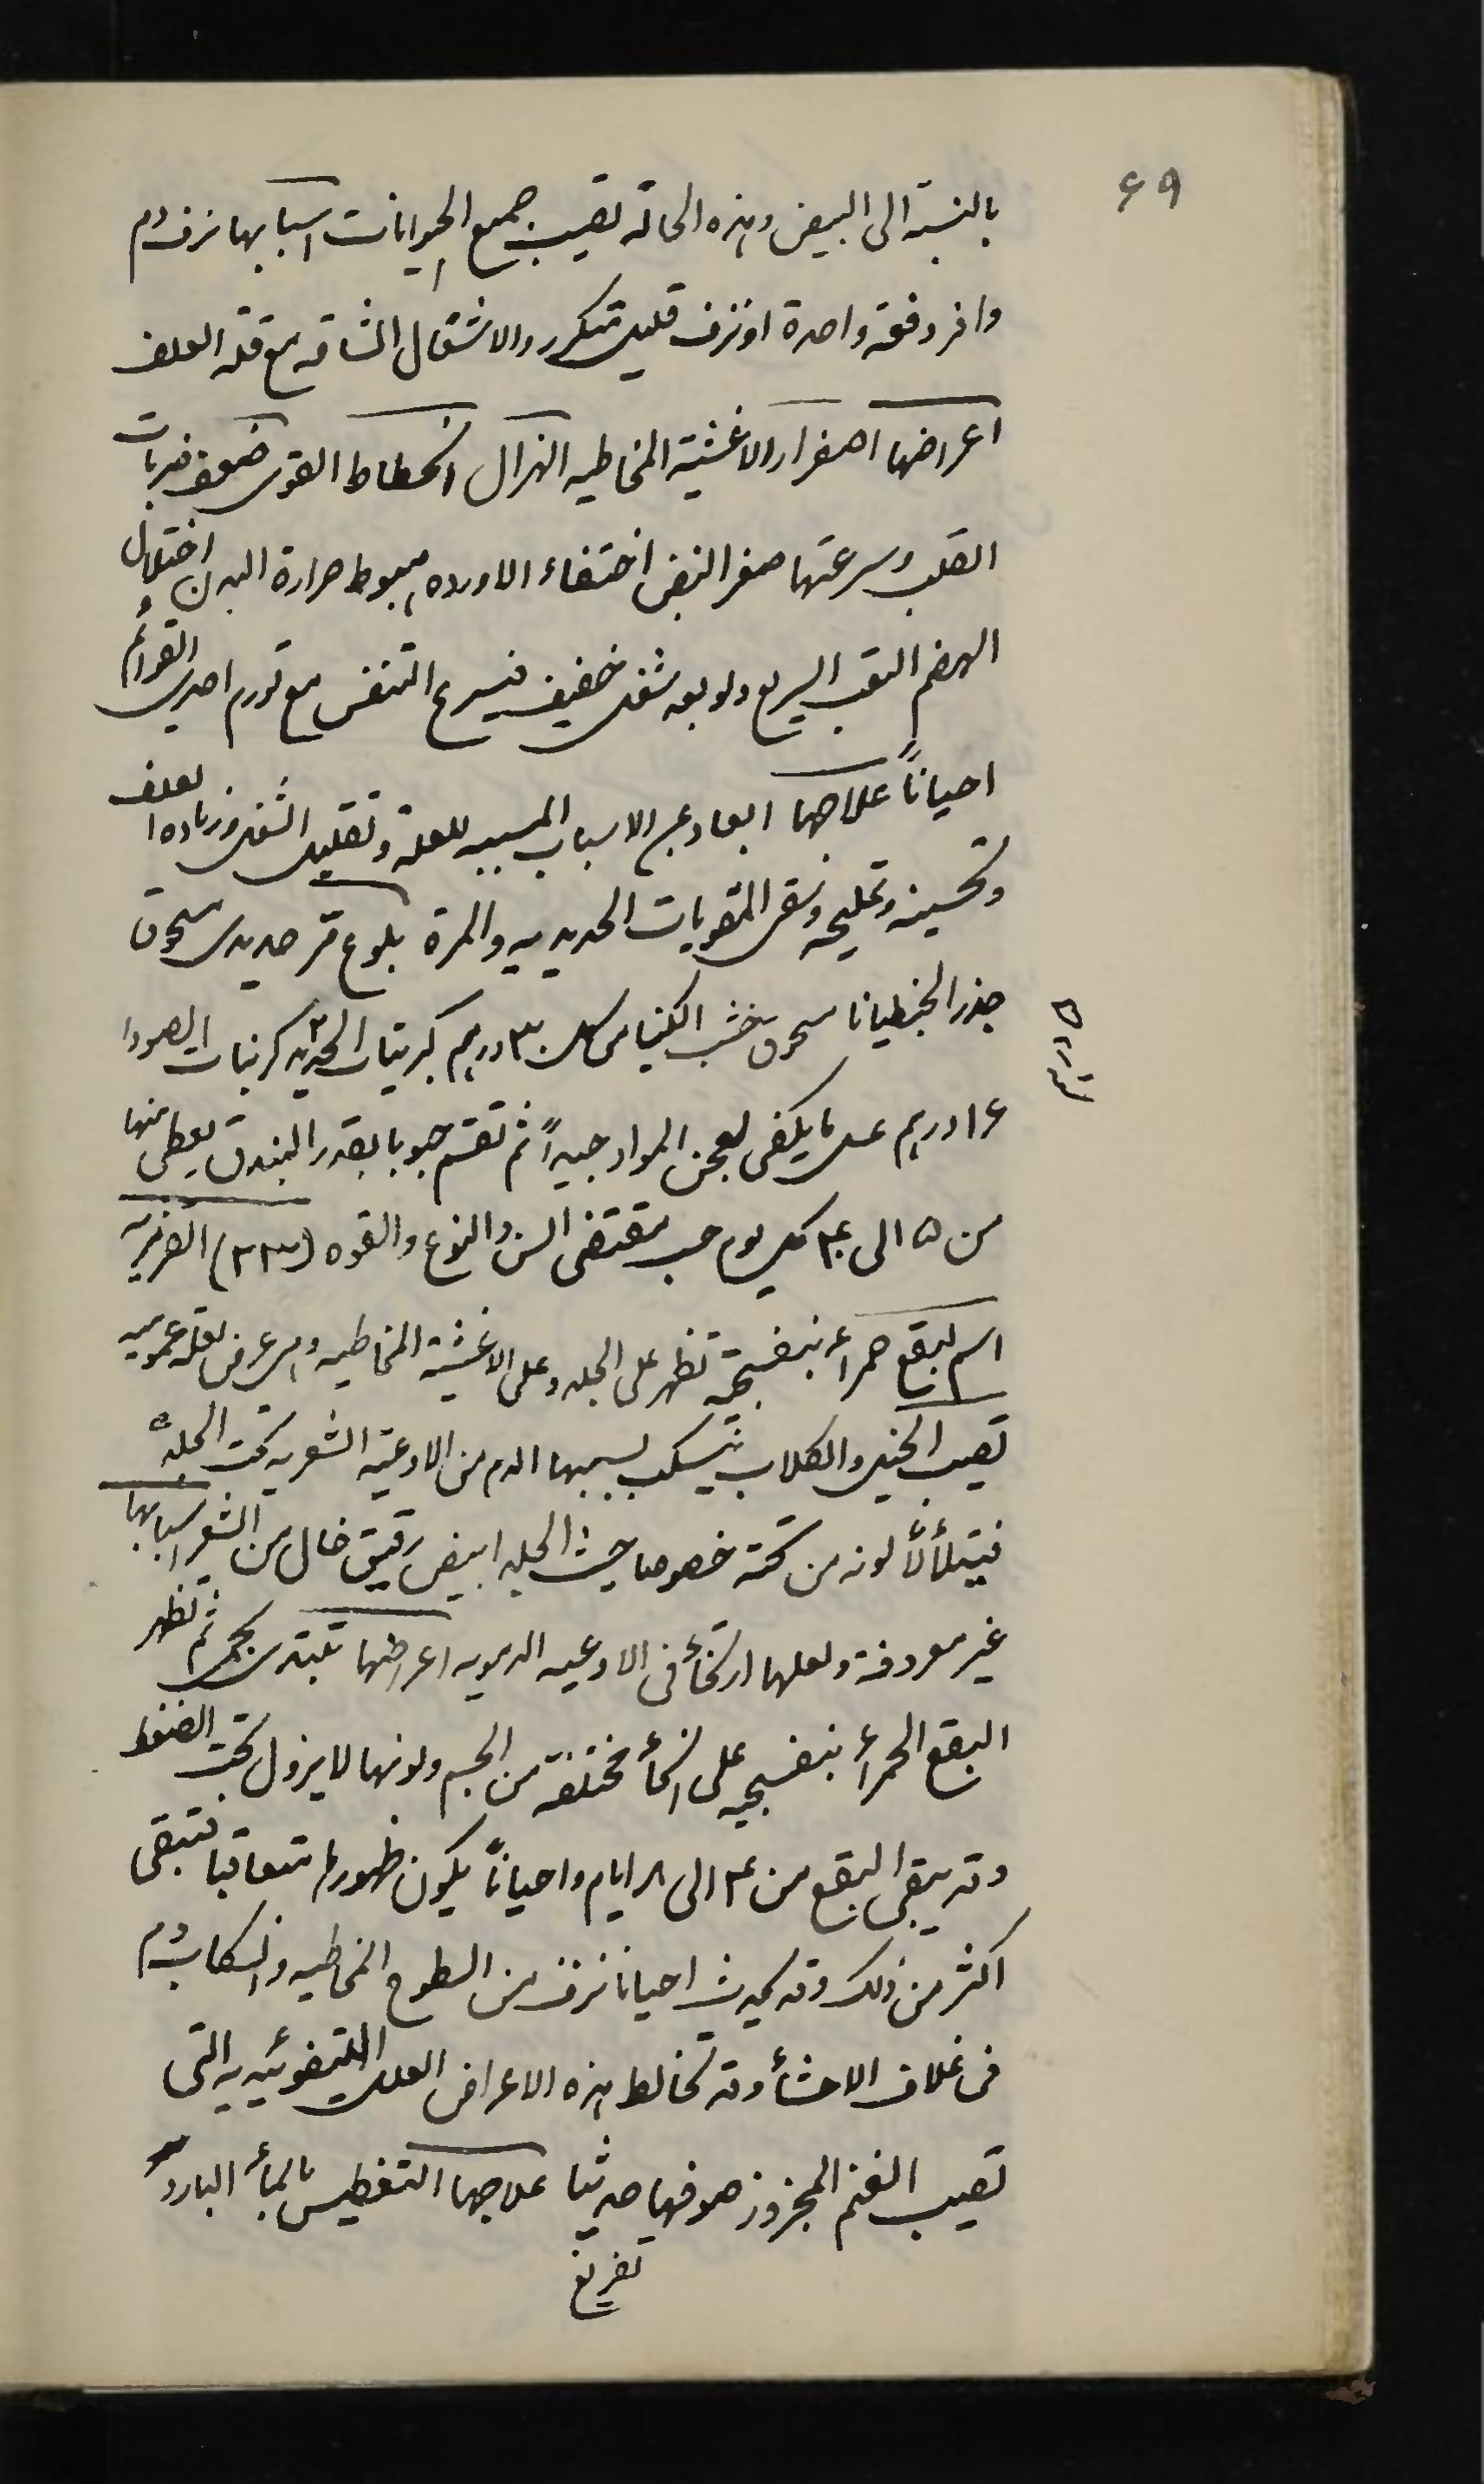 ٦٩
بالنسبة الى البيض وهذه الحالة تصيب جميع الحيوانات اسبابها نزف دم
وافر دفعة واحدة او نزف قليل متكرر والاشغال الشاقه مع قلة العلف
اعراضها اصفرار الاغشية المخاطيه الهزال انحطاط القوى ضعف ضربات
القلب وسرعتها صغر النبض اختفاء الاورده هبوط حرارة البدن اختلال
الهضم التعب السريع ولو بعد شغل خفيف فيسرع التنفس مع تورم احدى القوائم
احياناً علاجها ابعاد عن الاسباب المسببه للعلة وتقليل الشغل وزيادة العلف
وتحسينه وتمليحه وسقى المقويات الحديديه والمرة بلوع مر حديدى سحوق
جذر الجنطيانا سحوق خشب الكينا من كل ٣٠ درهم كبريتات الحديد ٣ كربنات الصودا
١٦ درهم عسل ما يكفى لعجن المواد جيداً ثم تقسم حبوبا بقدر البندق يعطى منها
من ٥ الى ٤ كل يوم حسب مقتضى السن والنوع والقوه (٣٣) الفرفريه
اسم لبقع حمراء بنفسجية تظهر على الجلد وعلى الاغشية المخاطيه وهى عرض لعله عموميه
تصيب الخيل والكلاب ينسكب بسببها الدم من الاوعية الشعريه تحت الجلد
فيتلألأ لونه من تحته خصوصا حيث الجلد ابيض رقيق خال من الشعر اسبابها
غير معروفة ولعلها ارتخأ فى الاوعيه الدمويه اعراضها تبتدى بحمى ثم تظهر
البقع الحمرأ بنفسجيه على انحأ مختلفة من الجسم ولونها لا يزول تحت الضغط
وقد يبقى البقع من ٤ الى ٨ ايام واحياناً يكون ظهورها متعاقبا فتبقى
اكثر من ذلك وقد يحدث احيانا نزف من السطوح المخاطيه وانسكاب دم
فى غلاف الاحشأ وقد تخالط هذه الاعراض العلل التيفوئيديه التى
تصيب الغنم المجزوز صوفها حديثا علاجها التغطيس بالمأ البارد